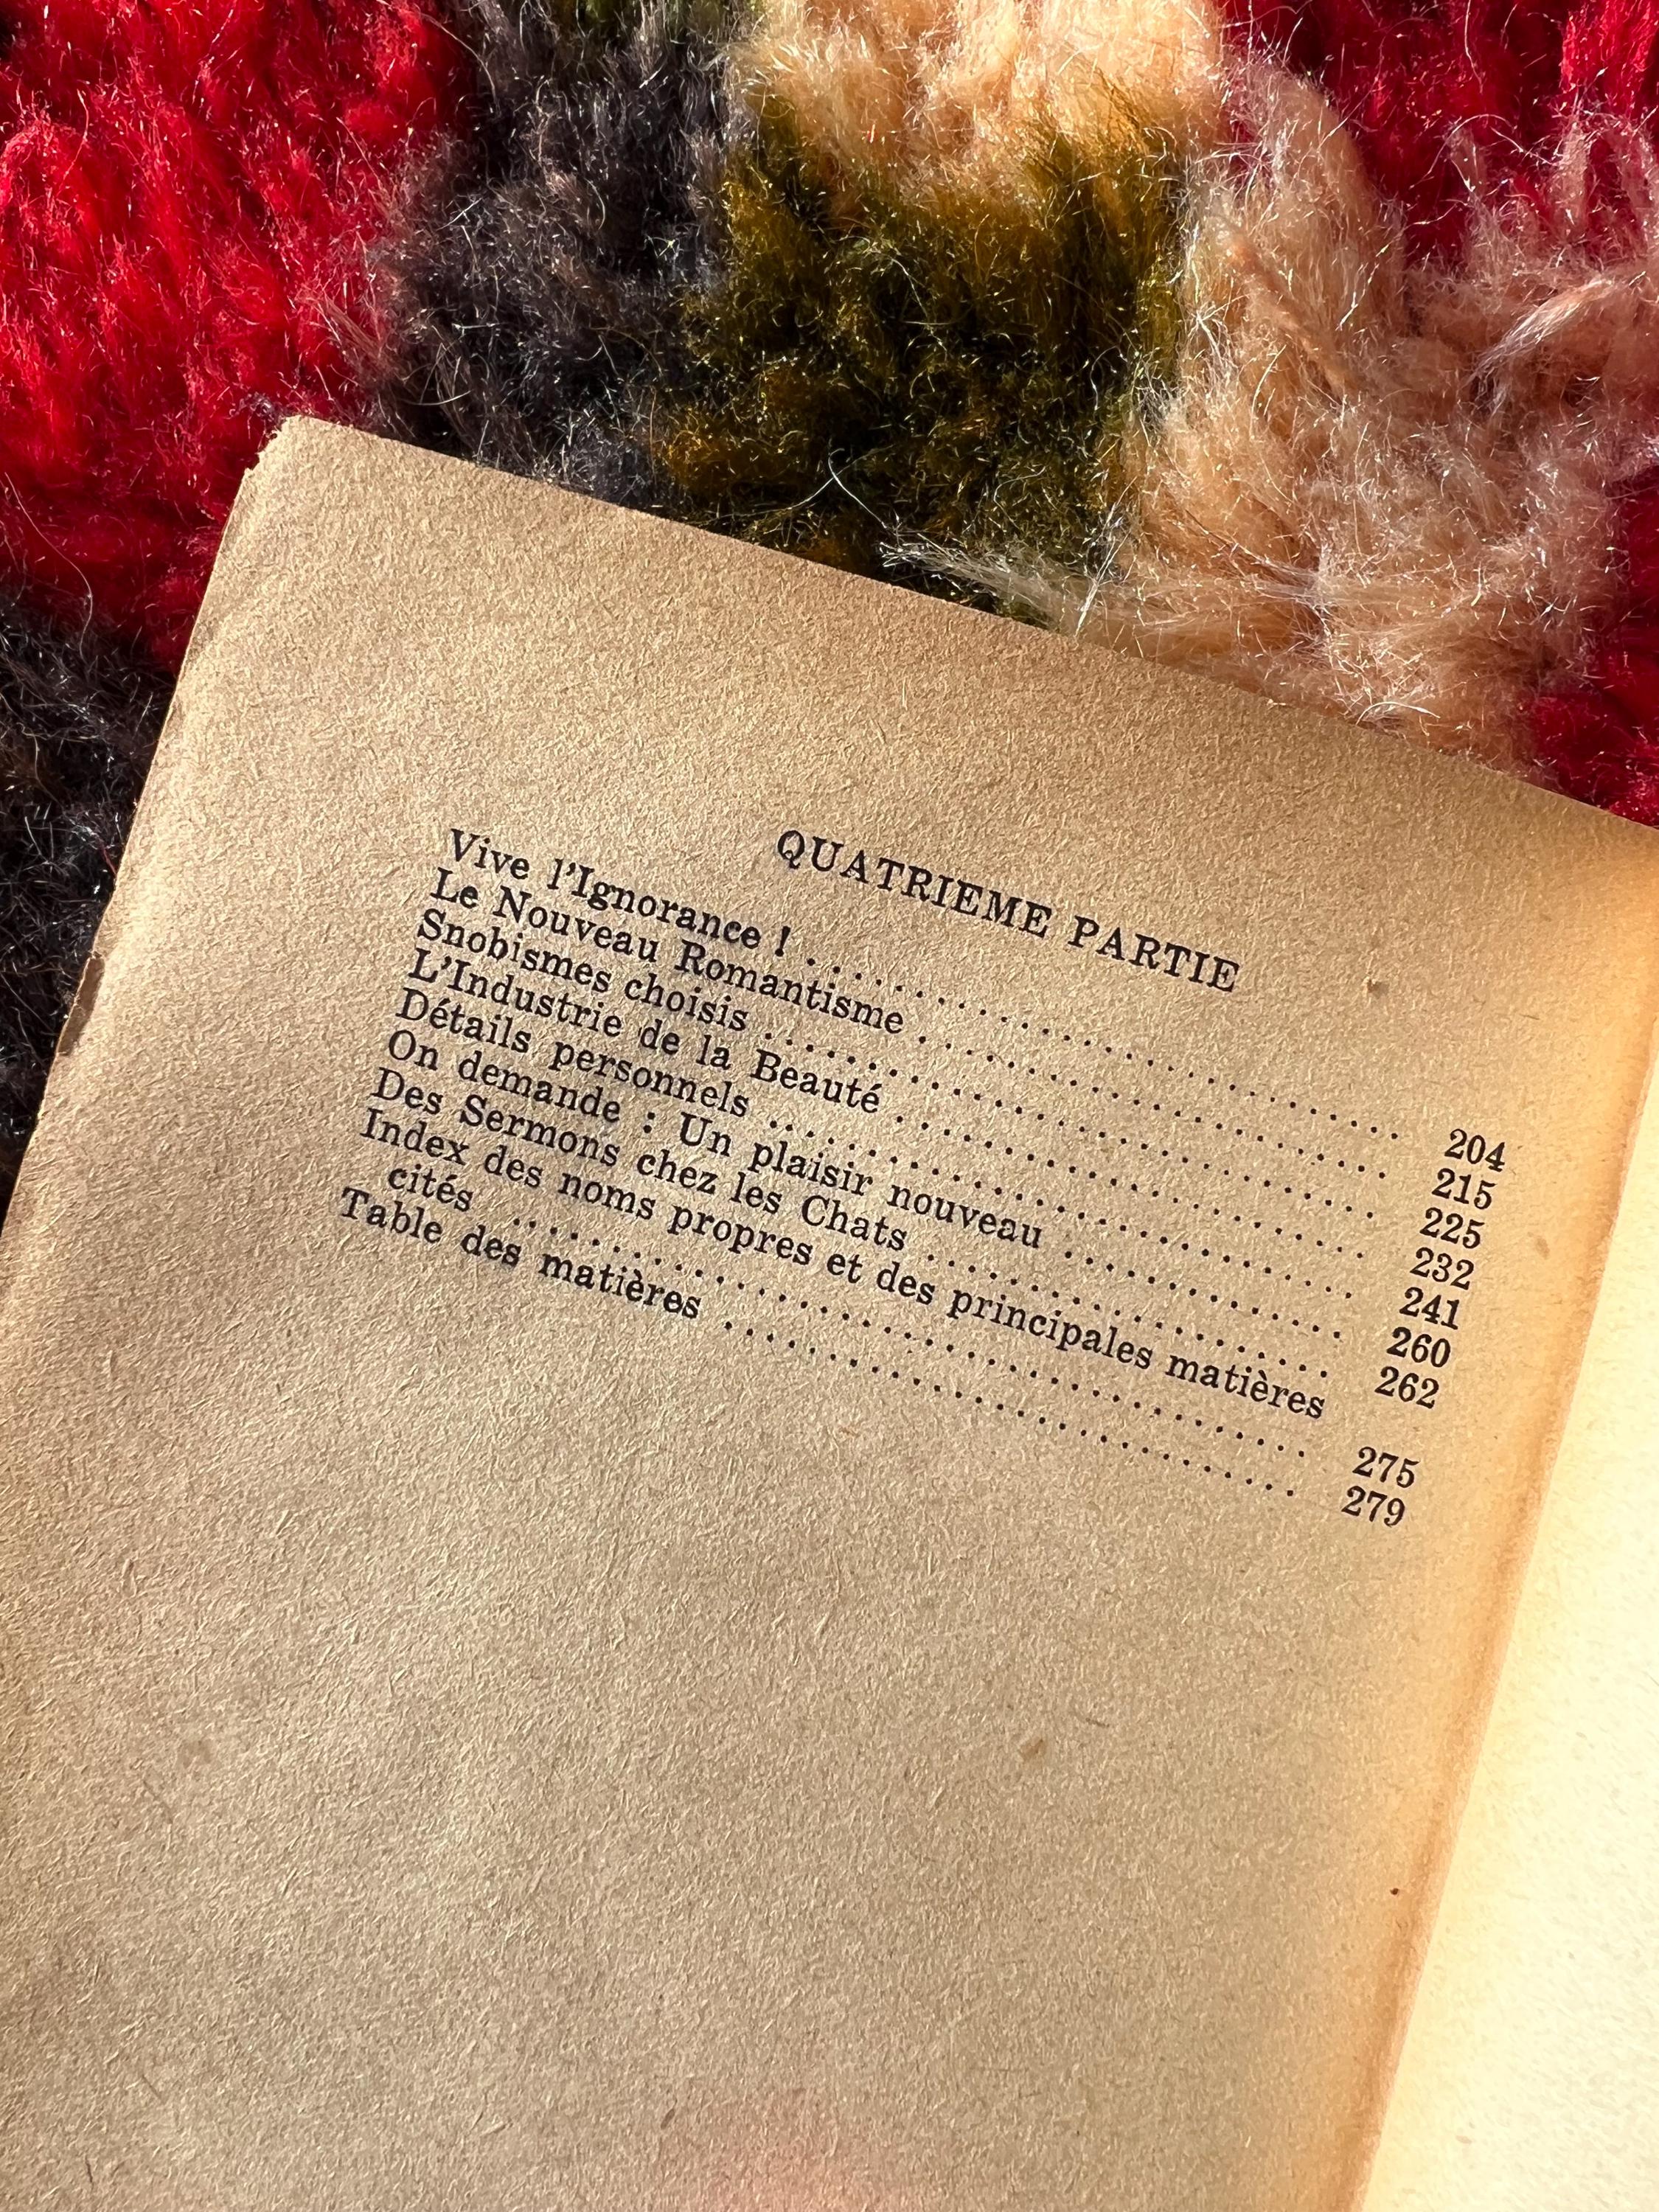 QUATRIEME PARTIE
Vive l'Ignorance ! ........................................ 204
Le Nouveau Romantisme ........................................ 215
Snobismes choisis ........................................ 225
L'Industrie de la Beauté ........................................ 232
Détails personnels ........................................ 241
On demande : Un plaisir nouveau ........................................ 260
Des Sermons chez les Chats ........................................ 262
Index des noms propres et des principales matières
cités ........................................ 275
Table des matières ........................................ 279